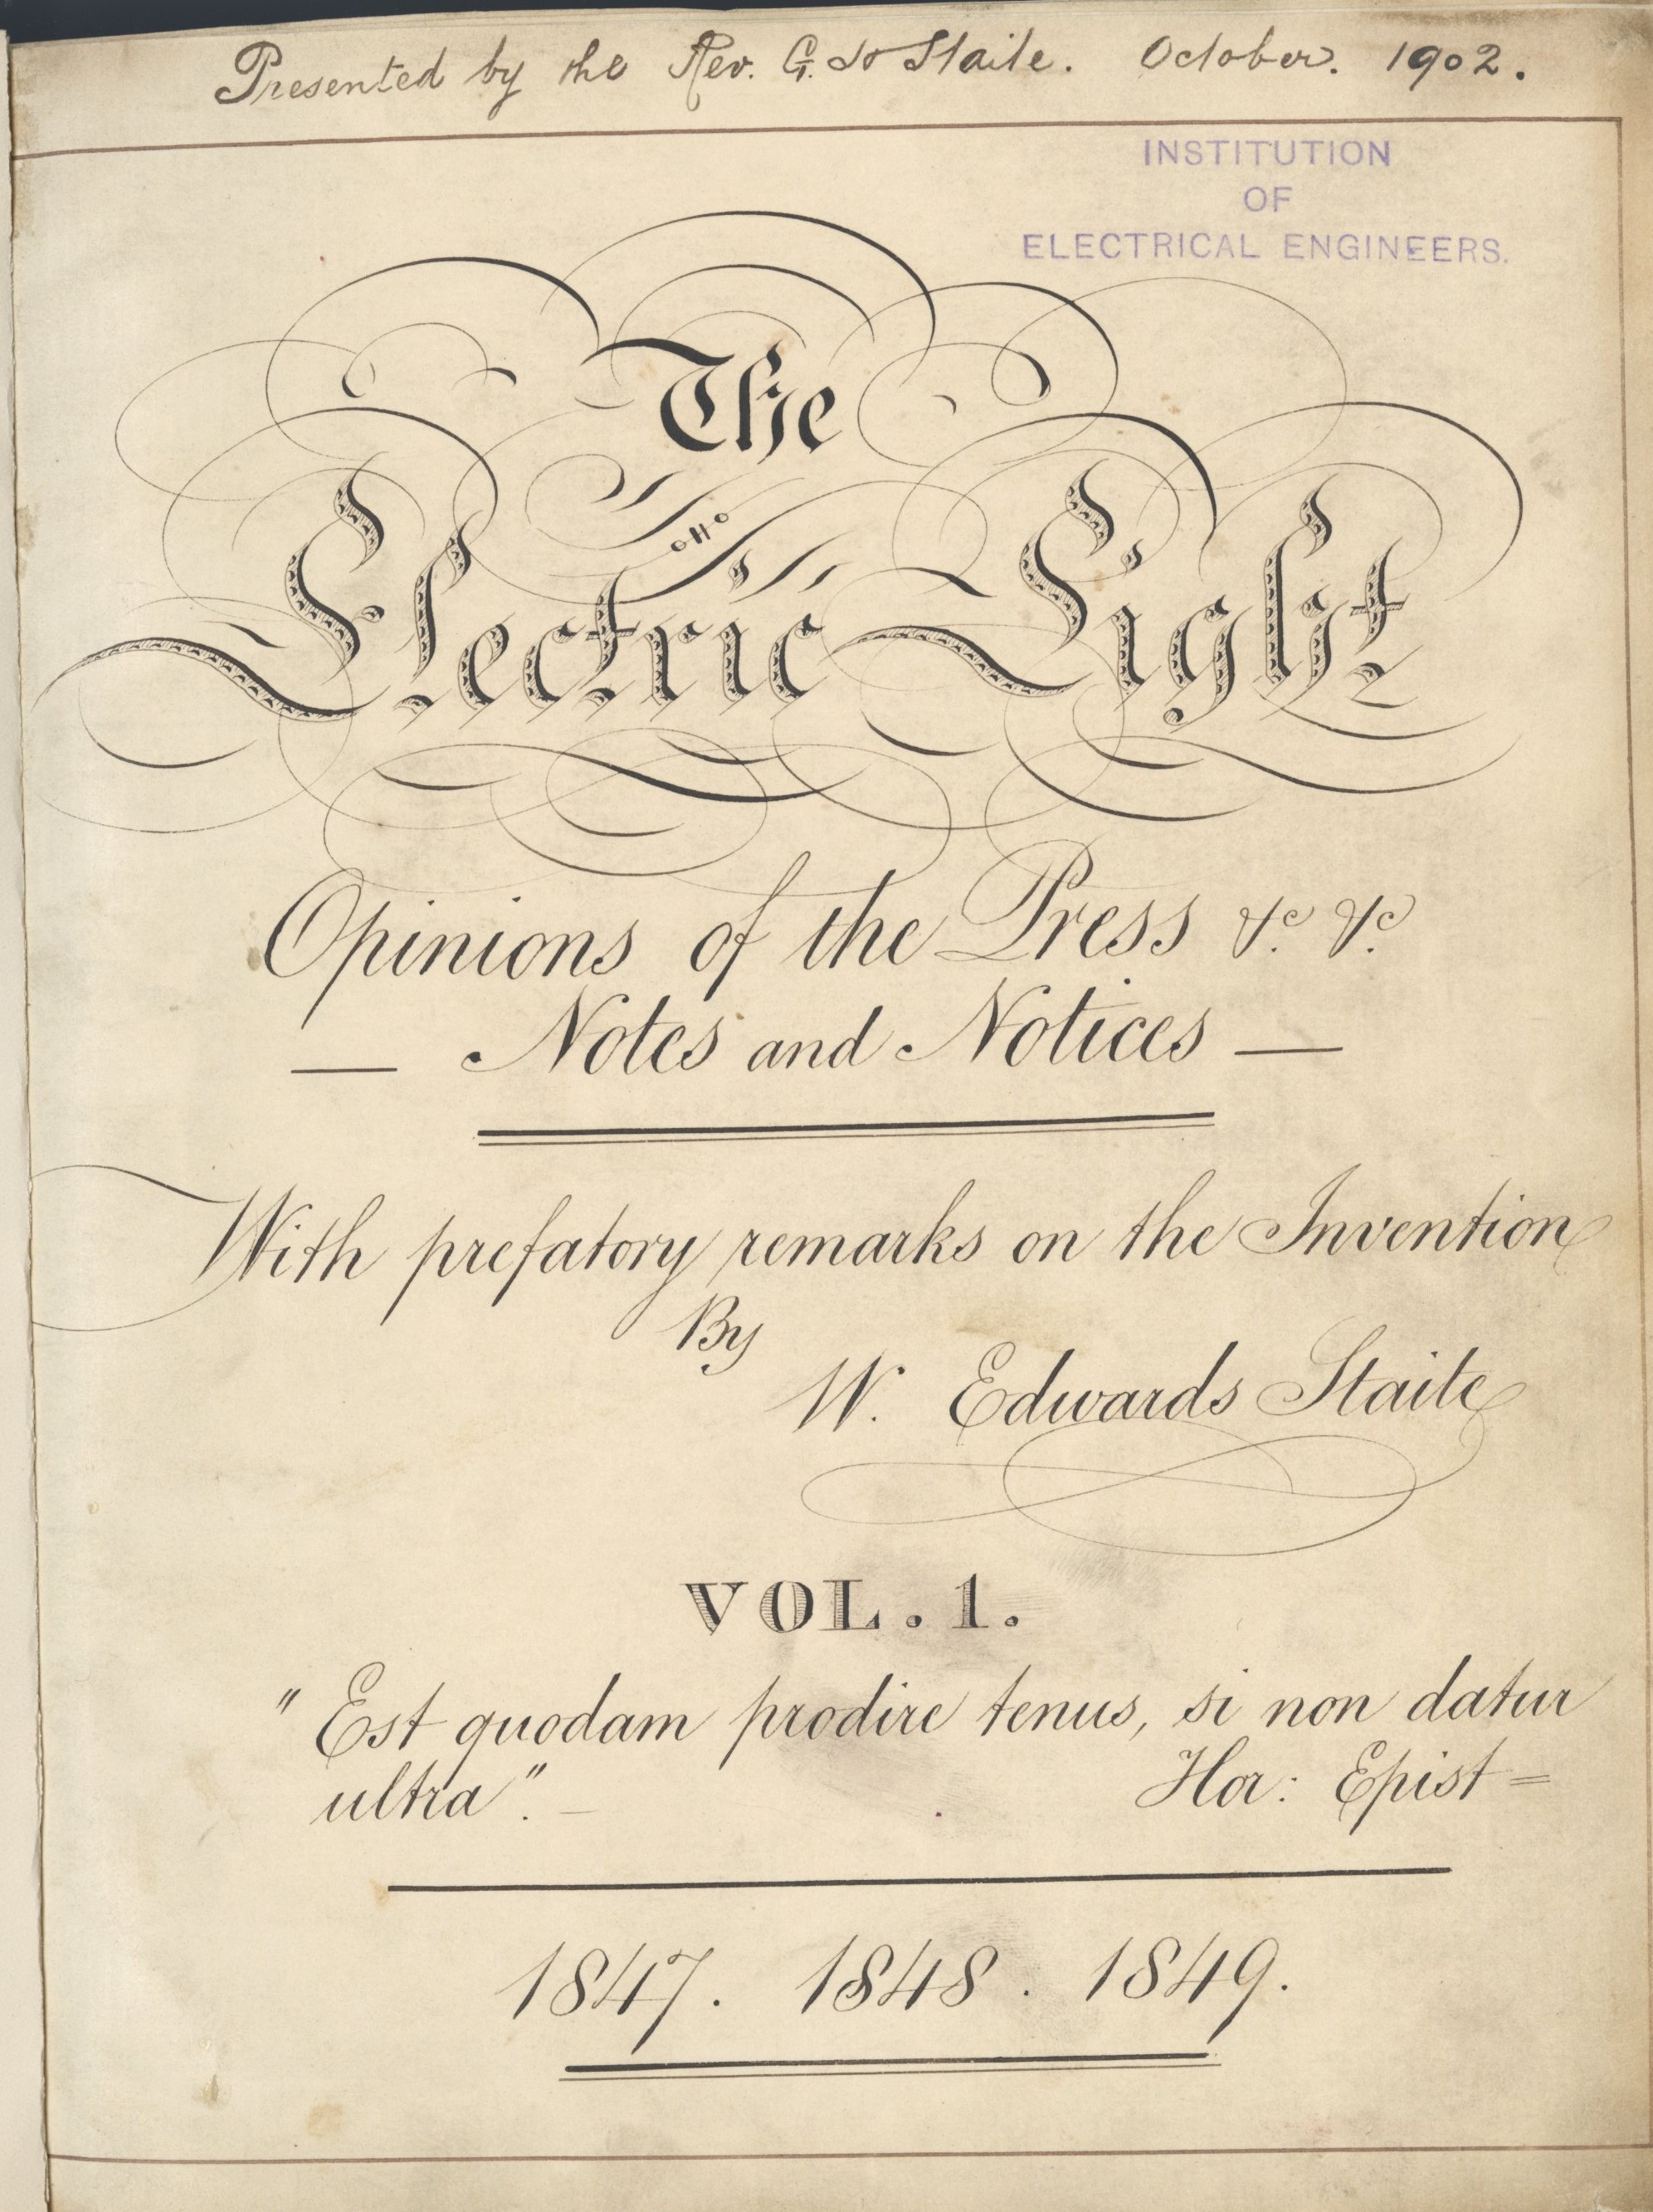 Presented by the Rev. G. Staite. October. 1902.
INSTITUTION
OF
ELECTRICAL ENGINEERS.
The
Electric Light
Opinions of the Press &c. &c.
— Notes and Notices —
With prefatory remarks on the Invention
By
W. Edwards Staite
VOL. 1.
"Est quodam prodire tenus, si non datur
ultra". — Hor: Epist=
1847. 1848. 1849.